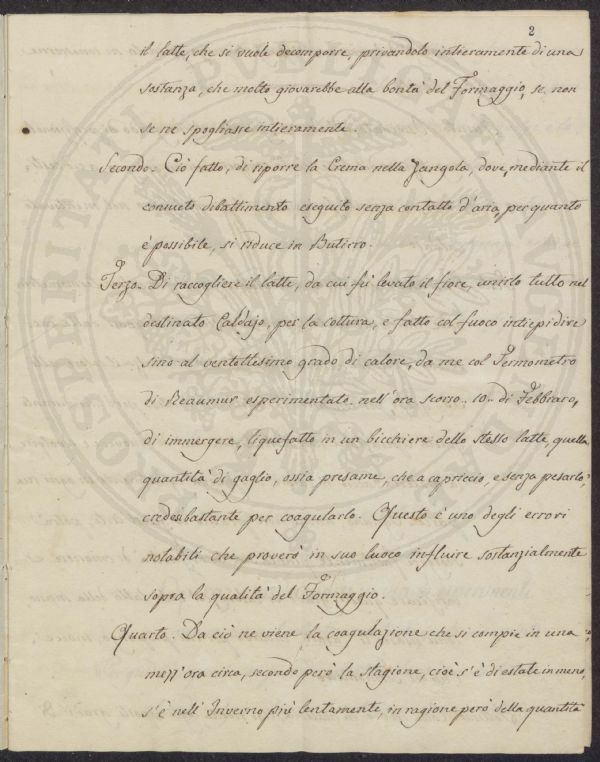 2
il latte, che si vuole decomporre, privandolo intieramente di una
sostanza, che molto giovarebbe alla bontà del Formaggio, se non
se ne spogliasse intieramente.
Secondo. Ciò fatto, di riporre la Crema nella Zangola, dove, mediante il
consueto dibattimento eseguito senza contatto d'aria, per quanto
è possibile, si riduce in Butirro.
Terzo. Di raccogliere il latte, da cui fù levato il fiore, unirlo tutto nel
destinato Caldajo, per la cottura, e fatto col fuoco intiepidire
sino al ventottesimo grado di calore, da me col Termometro
di Reaumur esperimentato nell'ora scorso 10. di Febbraro,
di immergere, liquefatto in un bicchiere dello stesso latte, quella
quantità di gaglio, ossia presame, che a capriccio, e senza pesarlo,
credesi bastante per coagularlo. Questo è uno degli errori
notabili che proverò in suo luoco influire sostanzialmente
sopra la qualità del Formaggio.
Quarto. Da ciò ne viene la coagulazione che si compie in una
mezz'ora circa, secondo però la stagione, cioè s'è di estate in meno,
s'è nell'Inverno più lentamente, in ragione però della quantità
POSTERITATI